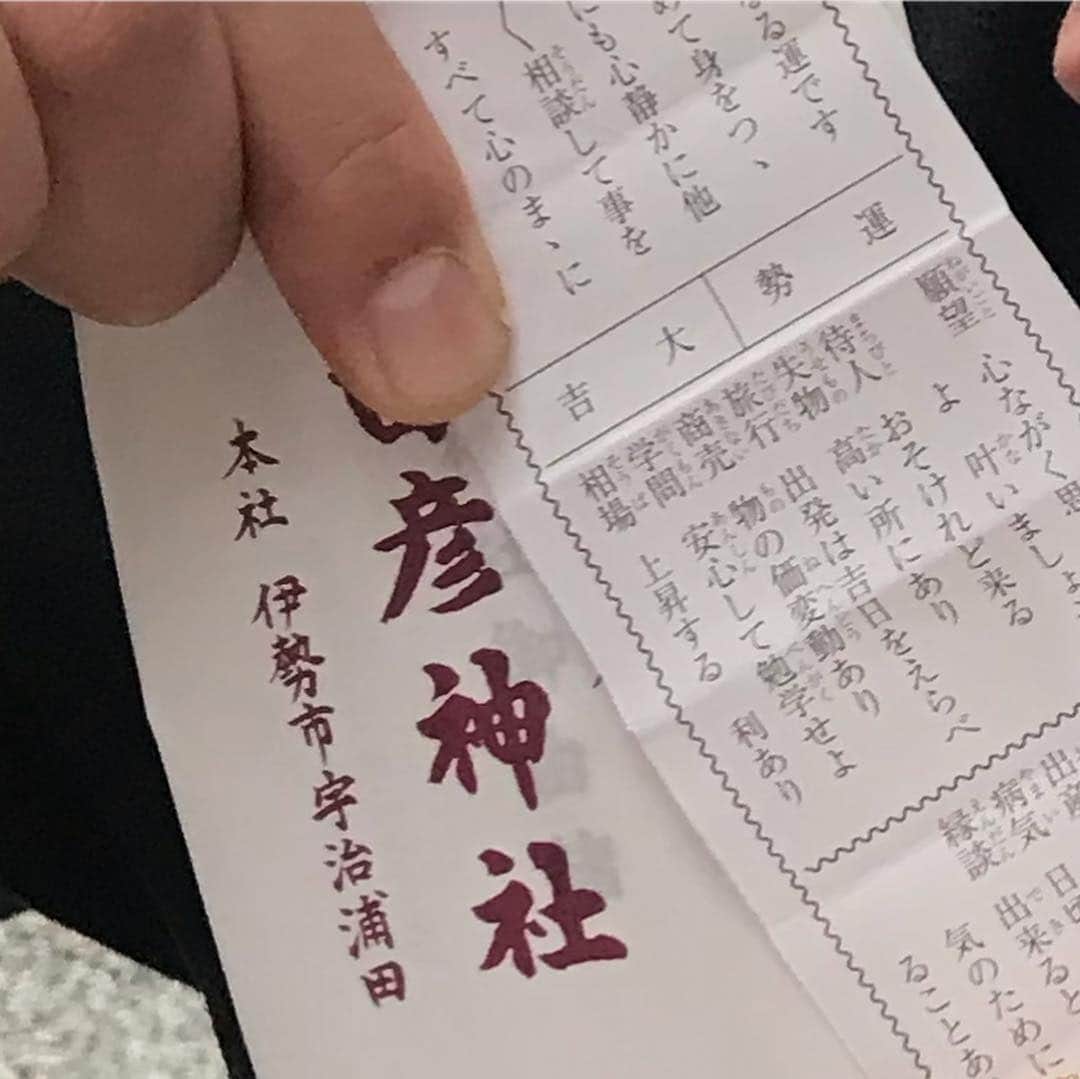 る運です
めて身をつゝ
にも心静かに他
く相談して事を
すべて心のまゝに
運勢 大吉
願望 心ながく思
叶いましよ
待人 おそけれど来る
失物 高い所にあり
旅行 出発は吉日をえらべ
商売 物の価変動あり
学問 安心して勉学せよ
相場 上昇する 利あり
出産
病気
縁談
出来ると
気のために
ることあ
彦神社
本社 伊勢市宇治浦田